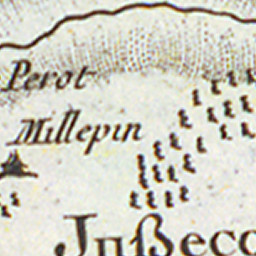 Perot
Millepin
Jnßeco